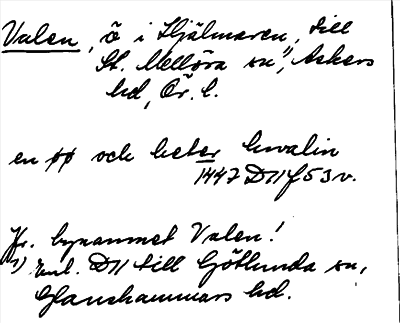 Valen, ö i Hjälmaren, till
St. Mellösa sn¹⁾, Askers
hd, Ör. l.
en øø och heter hwalin
1447 D11 f 53 v.
Jfr. bynamnet Valen!
1) Enl. D11 till Götlunda sn,
Glanshammars hd.